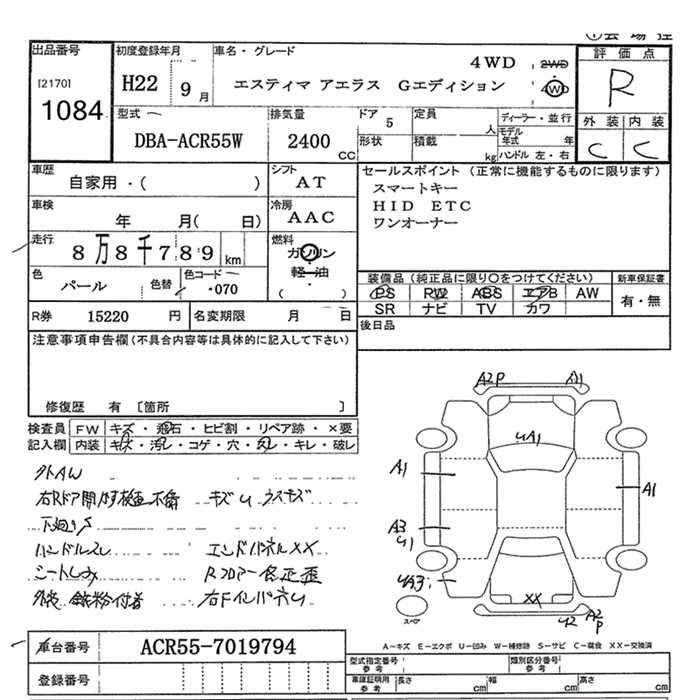 出品番号
[2170]
1084
初度登録年月
H22 9月
車名・グレード
4WD
エスティマ アエラス Gエディション
2WD
4WD
評価点
R
外装 内装
C C
型式
DBA-ACR55W
排気量
2400 CC
ドア 5
定員 人
形状
積載 kg
ディーラー・並行
モデル年式 年
ハンドル 左・右
車歴
自家用・( )
シフト
AT
車検
年 月( 日)
冷房
AAC
走行
8万8千789 km
燃料
ガソリン
軽油
( )
色
パール
色替
色コード
・070
R券 15220 円
名変期限 月 日
セールスポイント (正常に機能するものに限ります)
スマートキー
HID ETC
ワンオーナー
装備品(純正品に限り○をつけてください)
PS RW ABS エアB AW
SR ナビ TV カワ
新車保証書
有・無
後日品
注意事項申告欄(不具合内容等は具体的に記入して下さい)
修復歴 有 [箇所 ]
検査員記入欄
FW キズ・飛石・ヒビ割・リペア跡・×要
内装 キズ・汚レ・コゲ・穴・スレ・キレ・破レ
外AW
右Rドア開
キズ U ウスキズ
下廻りS
ハンドルスレ
エンドパネルXX
シートしみ
Rフロアー
外装 鉄粉付着
右FインパネU
A2P A1
UA1
A1
A1
A3
U1
UA3
XX
U2 A2P
スペア
A-キズ E-エクボ U-凹み W-補修跡 S-サビ C-腐食 XX-交換済
車台番号
ACR55-7019794
登録番号
型式指定番号
参考
類別区分番号
参考
車庫証明用
参考
長さ cm
幅 cm
高さ cm